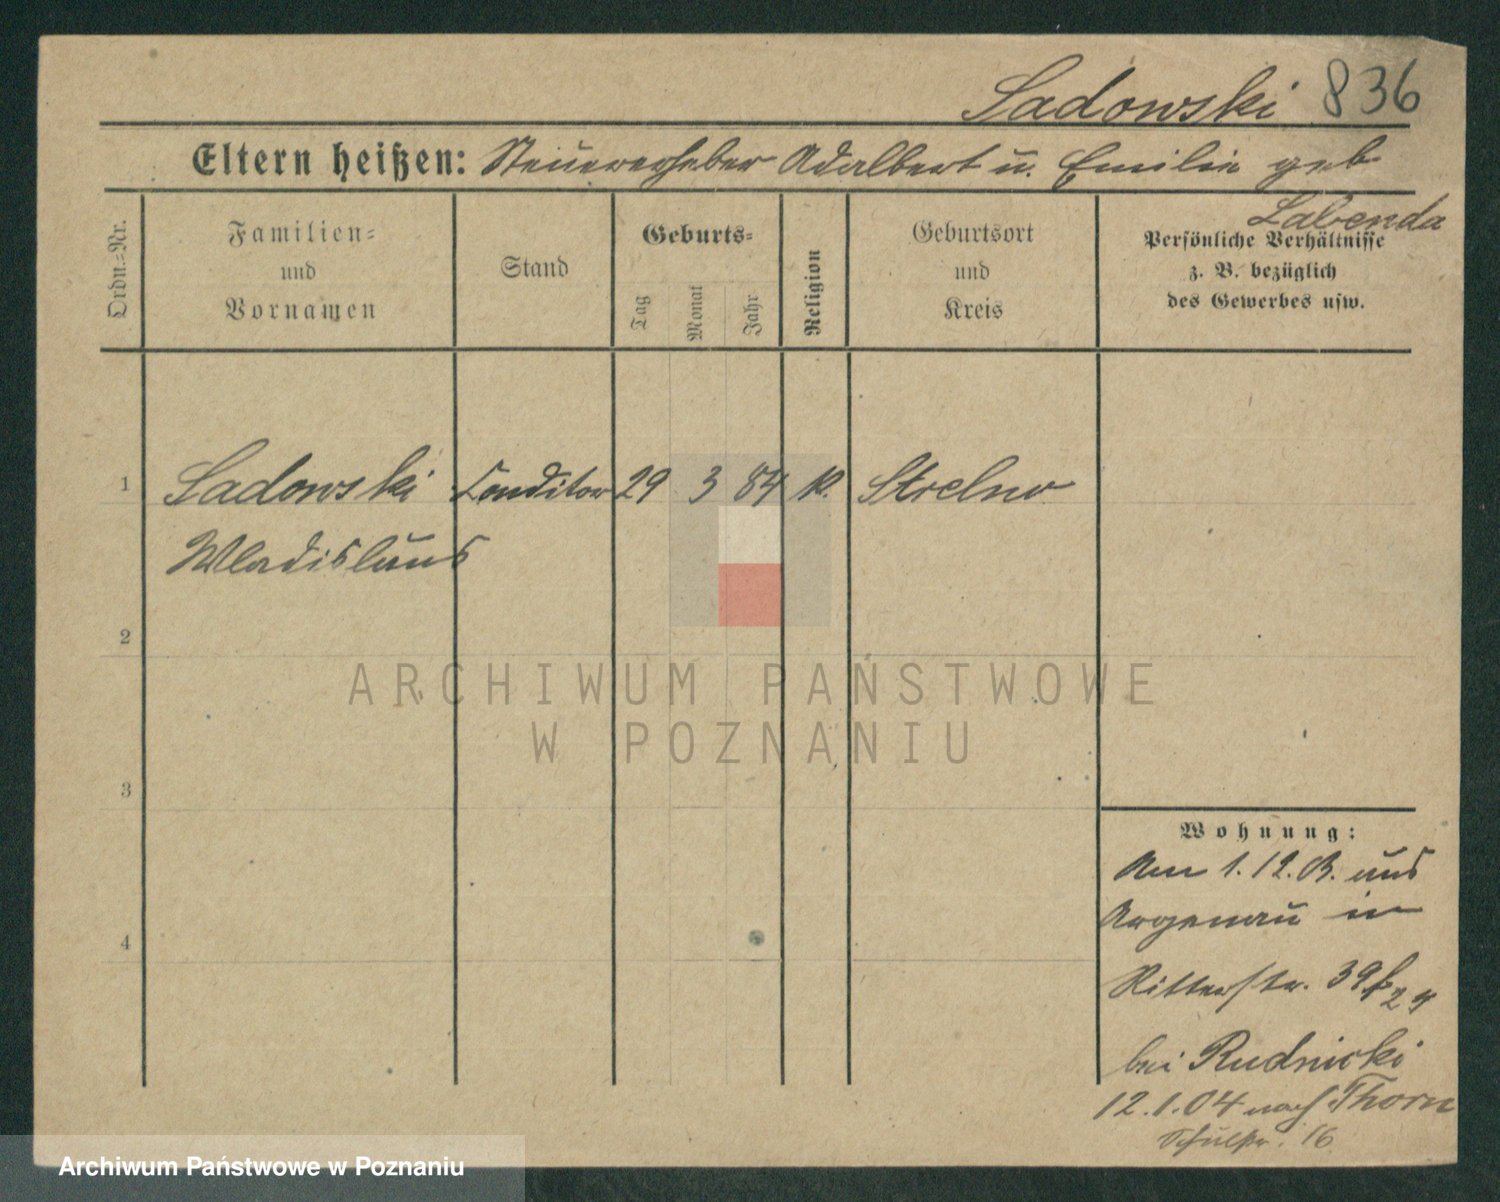 Sadowski 836
Eltern heißen: Steuererheber Adalbert u. Emilie geb
Labenda
Ordn.-Nr.
Familien- und Vornamen
Stand
Geburts-
Tag
Monat
Jahr
Religion
Geburtsort und Kreis
Persönliche Verhältnisse
z. B. bezüglich
des Gewerbes usw.
1 Sadowski Conditor 29 3 84 k. Strelno
Wladislaus
2
3
4
Wohnung:
Am 1.12.03. aus
Argenau in
Ritterstr. 39
bei Rudnicki
12.1.04 nach Thorn
Schulstr. 16
ARCHIWUM PAŃSTWOWE
W POZNANIU
Archiwum Państwowe w Poznaniu